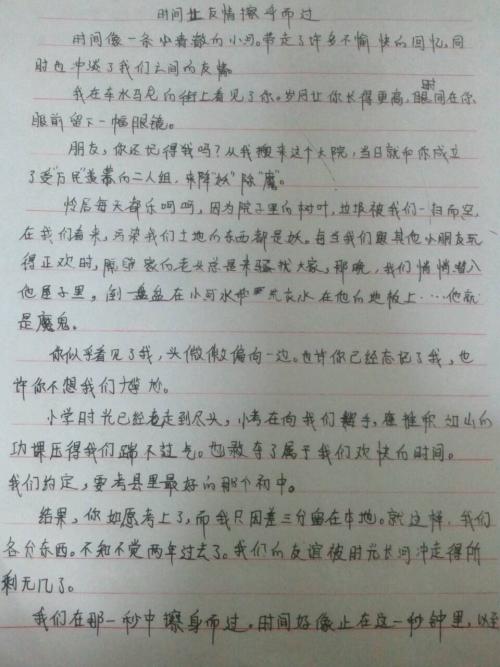 时间让友情擦手而过
时间像一条小清澈的小河。带走了许多不愉快的回忆,同
时也冲淡了我们之间的友情。
我在车水马龙的街上看见了你。岁月让你长得更高,时间在你
眼前留下一幅眼镜。
朋友,你还记得我吗?从我搬来这个大院,当日就和你成立
了受“万民”羡慕的二人组,来降“妖”除“魔”。
邻居每天都乐呵呵,因为院子里的树叶,垃圾被我们一扫而空,
在我们看来,污染我们土地的东西都是妖。每当我们跟其他小朋友玩
得正欢时,隔壁家的老头总是来骚扰大家,那晚,我们悄悄潜入
他屋子里,倒一盘盆在小河水和洗衣水在他的地板上……他就
是魔鬼。
你似乎看见了我,头微微偏向一边。也许你已经忘记了我,也
许你不想我们尴尬。
小学时光已经走到尽头,小考在向我们挥手,堆积如山的
功课压得我们踹不过气。也敢夺了属于我们欢快的时间。
我们约定,要考县里最好的那个初中。
结果,你如愿考上了,而我只因差三分留在本地。就这样,我们
各分东西。不知不觉两年过去了。我们的友谊被时光长河冲走得所
剩无几了。
我们在那一秒中擦身而过。时间好像止在这一秒钟里,以至